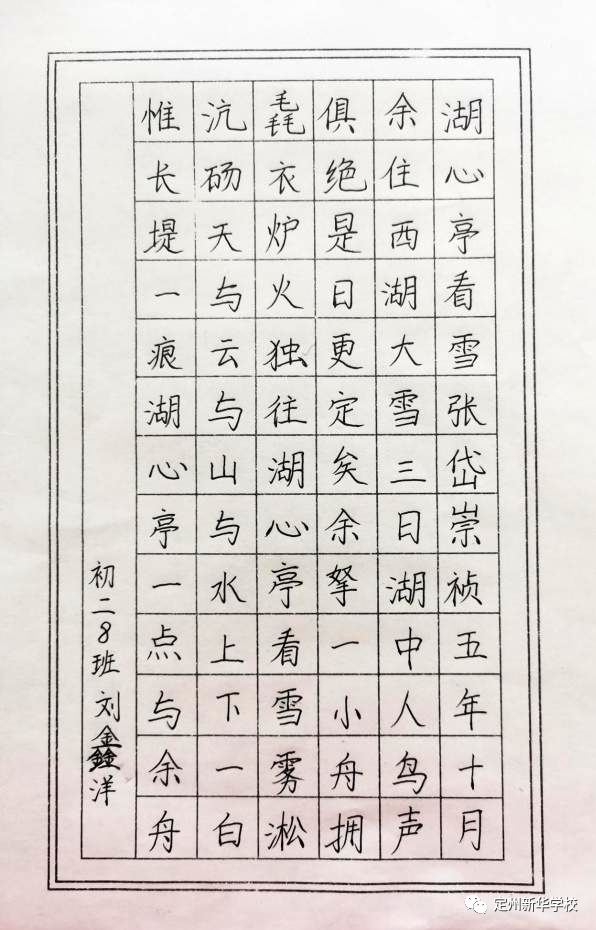 湖心亭看雪张岱崇祯五年十月
余住西湖大雪三日湖中人鸟声
俱绝是日更定矣余拏一小舟拥
毳衣炉火独往湖心亭看雪雾淞
沆砀天与云与山与水上下一白
惟长堤一痕湖心亭一点与余舟
初二8班刘鑫洋
定州新华学校